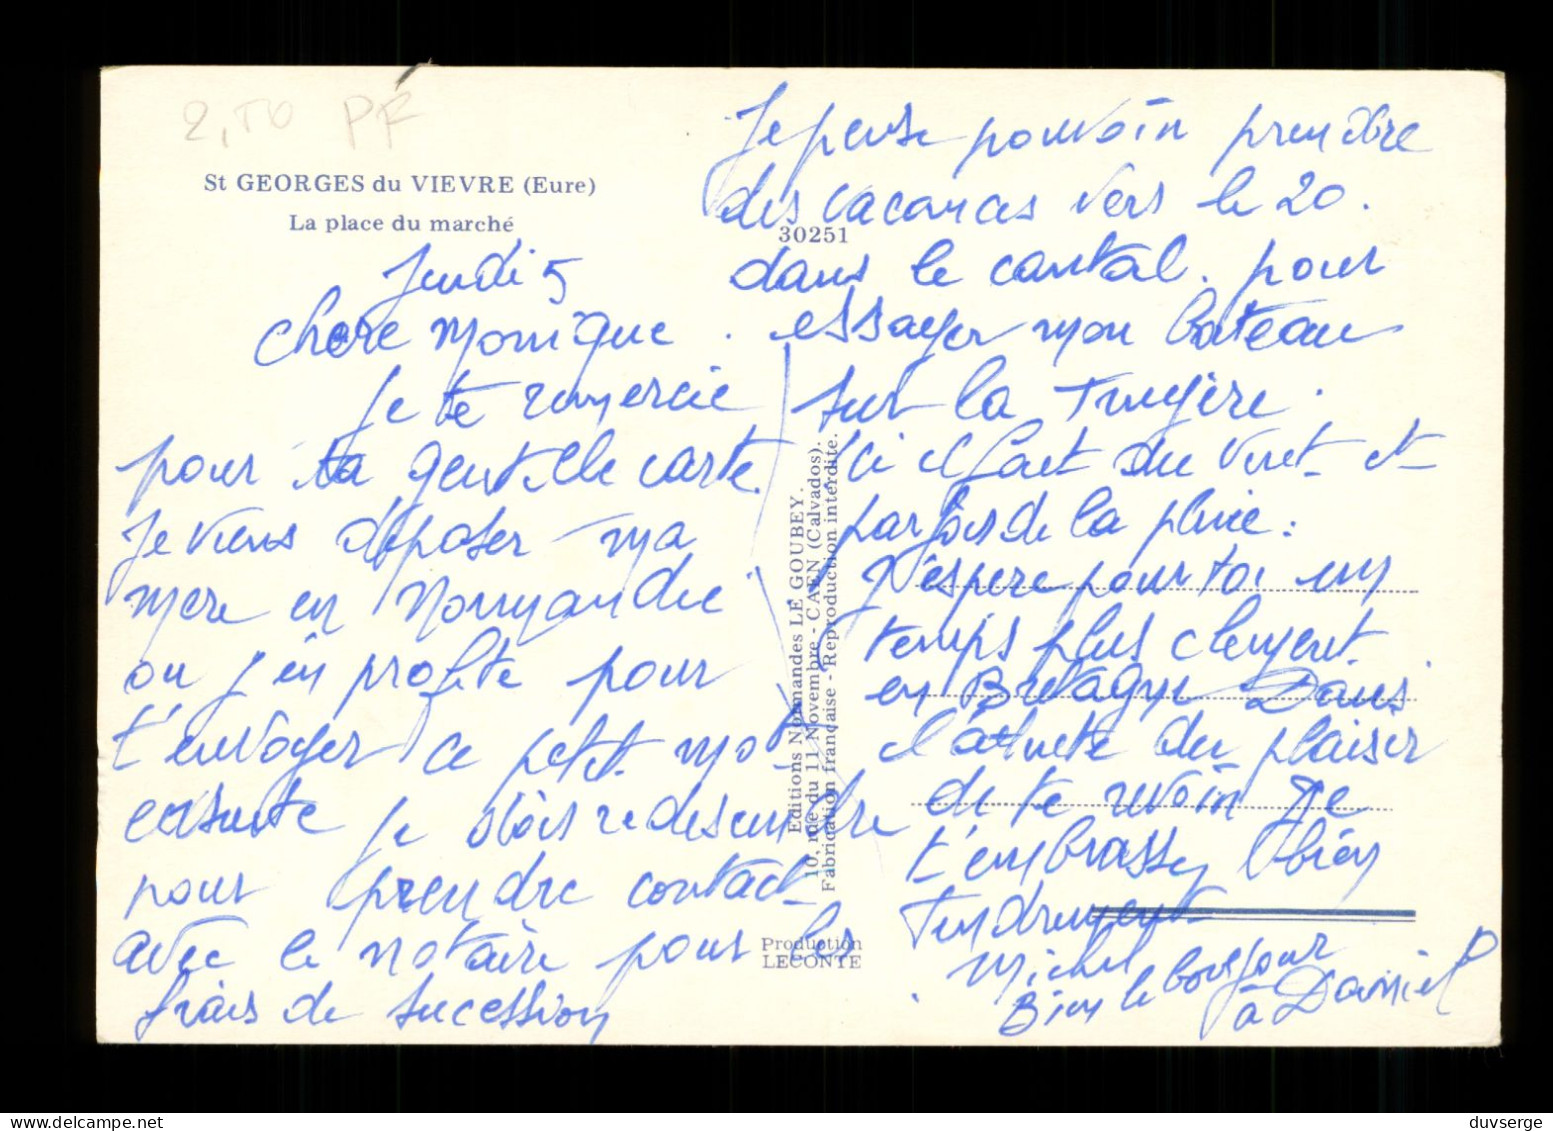 2,50 PF
St GEORGES du VIEVRE (Eure)
La place du marché
30251
Jeudi 5
Chere Monique.
Je te remercie
pour ta gentille carte.
Je viens déposer ma
mere en Normandie
ou j'en profite pour
t'envoyer ce petit mot
ensuite je dois redescendre
pour prendre contact
avec le notaire pour les
frais de sucession
Je pense pouvoir prendre
des vacances vers le 20.
dans le cantal. pour
essayer mon bateau
sur la Truyère.
Ici il fait du vent et
parfois de la pluie :
J'espere pour toi un
temps plus clement
en Bretagne Dans
l'attente du plaisir
de te revoir Je
t'embrasse bien
tendrement
Michel
Bien le bonjour
à Daniel
Editions Normandes LE GOUBEY.
10, rue du 11 Novembre - CAEN (Calvados).
Fabrication française - Reproduction interdite.
Production
LECONTE
delcampe.net
duvserge